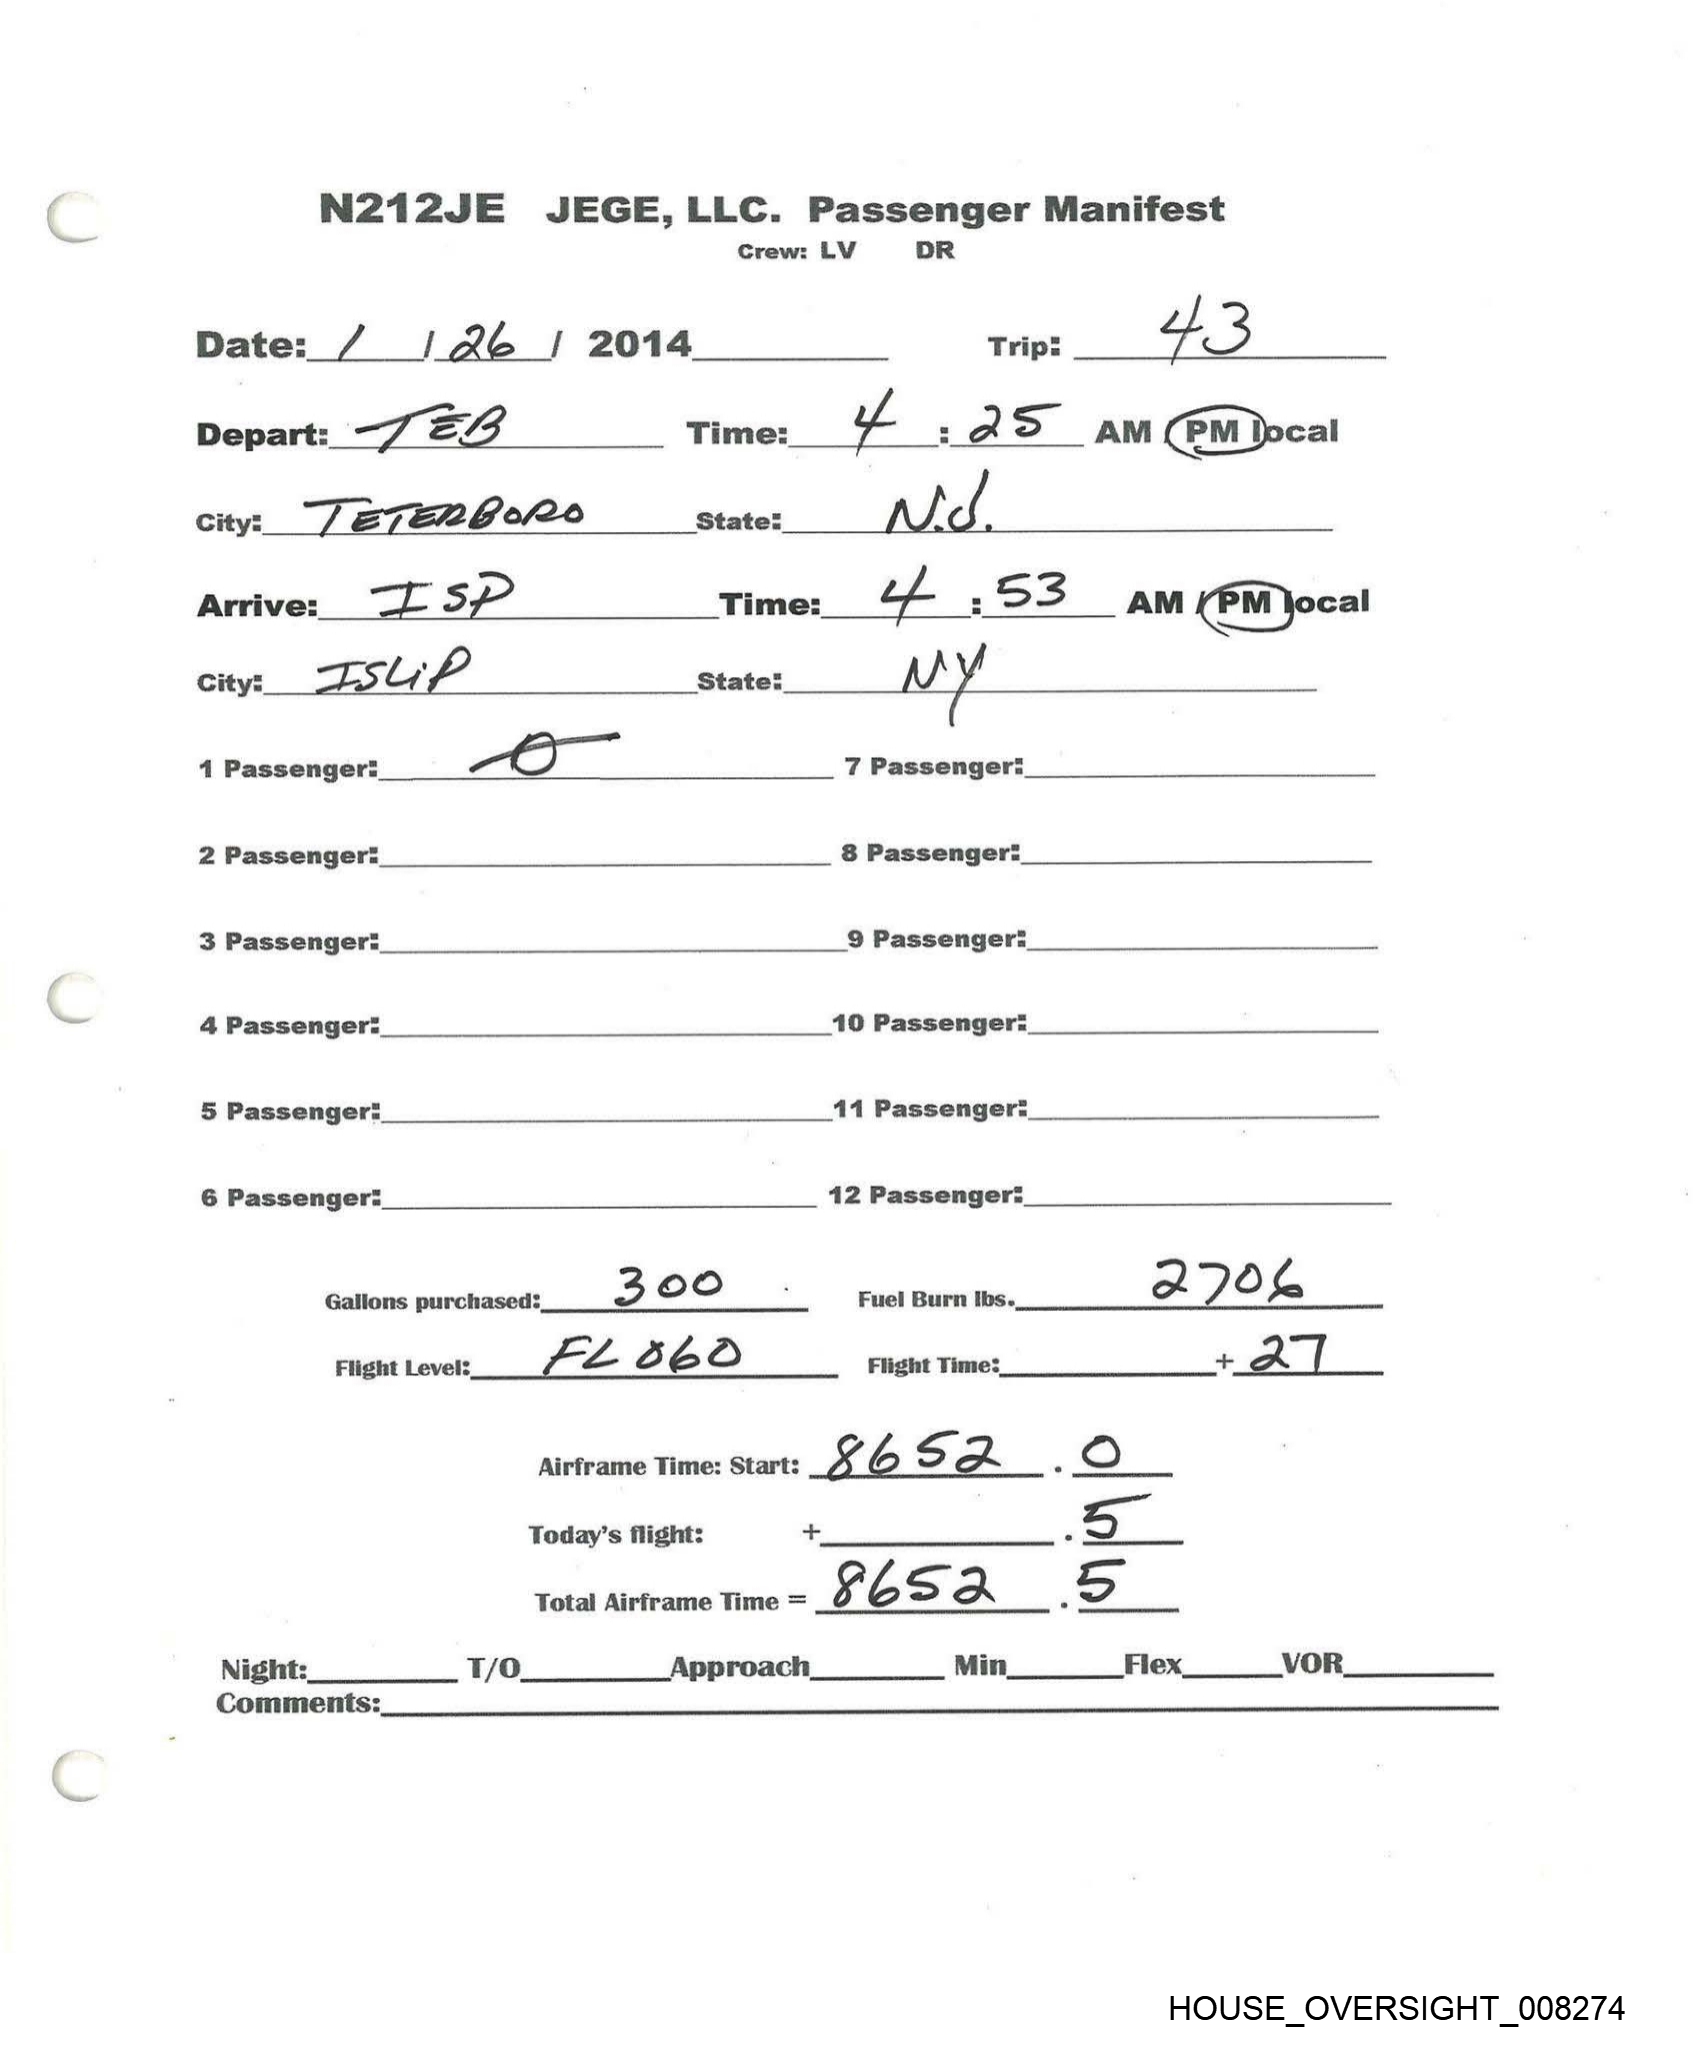 N212JE JEGE, LLC. Passenger Manifest
Crew: LV DR
Date: 1 / 26 / 2014 Trip: 43
Depart: TEB Time: 4 : 25 AM / PM local
City: TETERBORO State: N.J.
Arrive: ISP Time: 4 : 53 AM / PM local
City: ISLIP State: NY
1 Passenger: 0 7 Passenger:
2 Passenger: 8 Passenger:
3 Passenger: 9 Passenger:
4 Passenger: 10 Passenger:
5 Passenger: 11 Passenger:
6 Passenger: 12 Passenger:
Gallons purchased: 300 Fuel Burn lbs. 2706
Flight Level: FL 060 Flight Time: + 27
Airframe Time: Start: 8652 . 0
Today's flight: + . 5
Total Airframe Time = 8652 . 5
Night: T/O Approach Min Flex VOR
Comments:
HOUSE_OVERSIGHT_008274